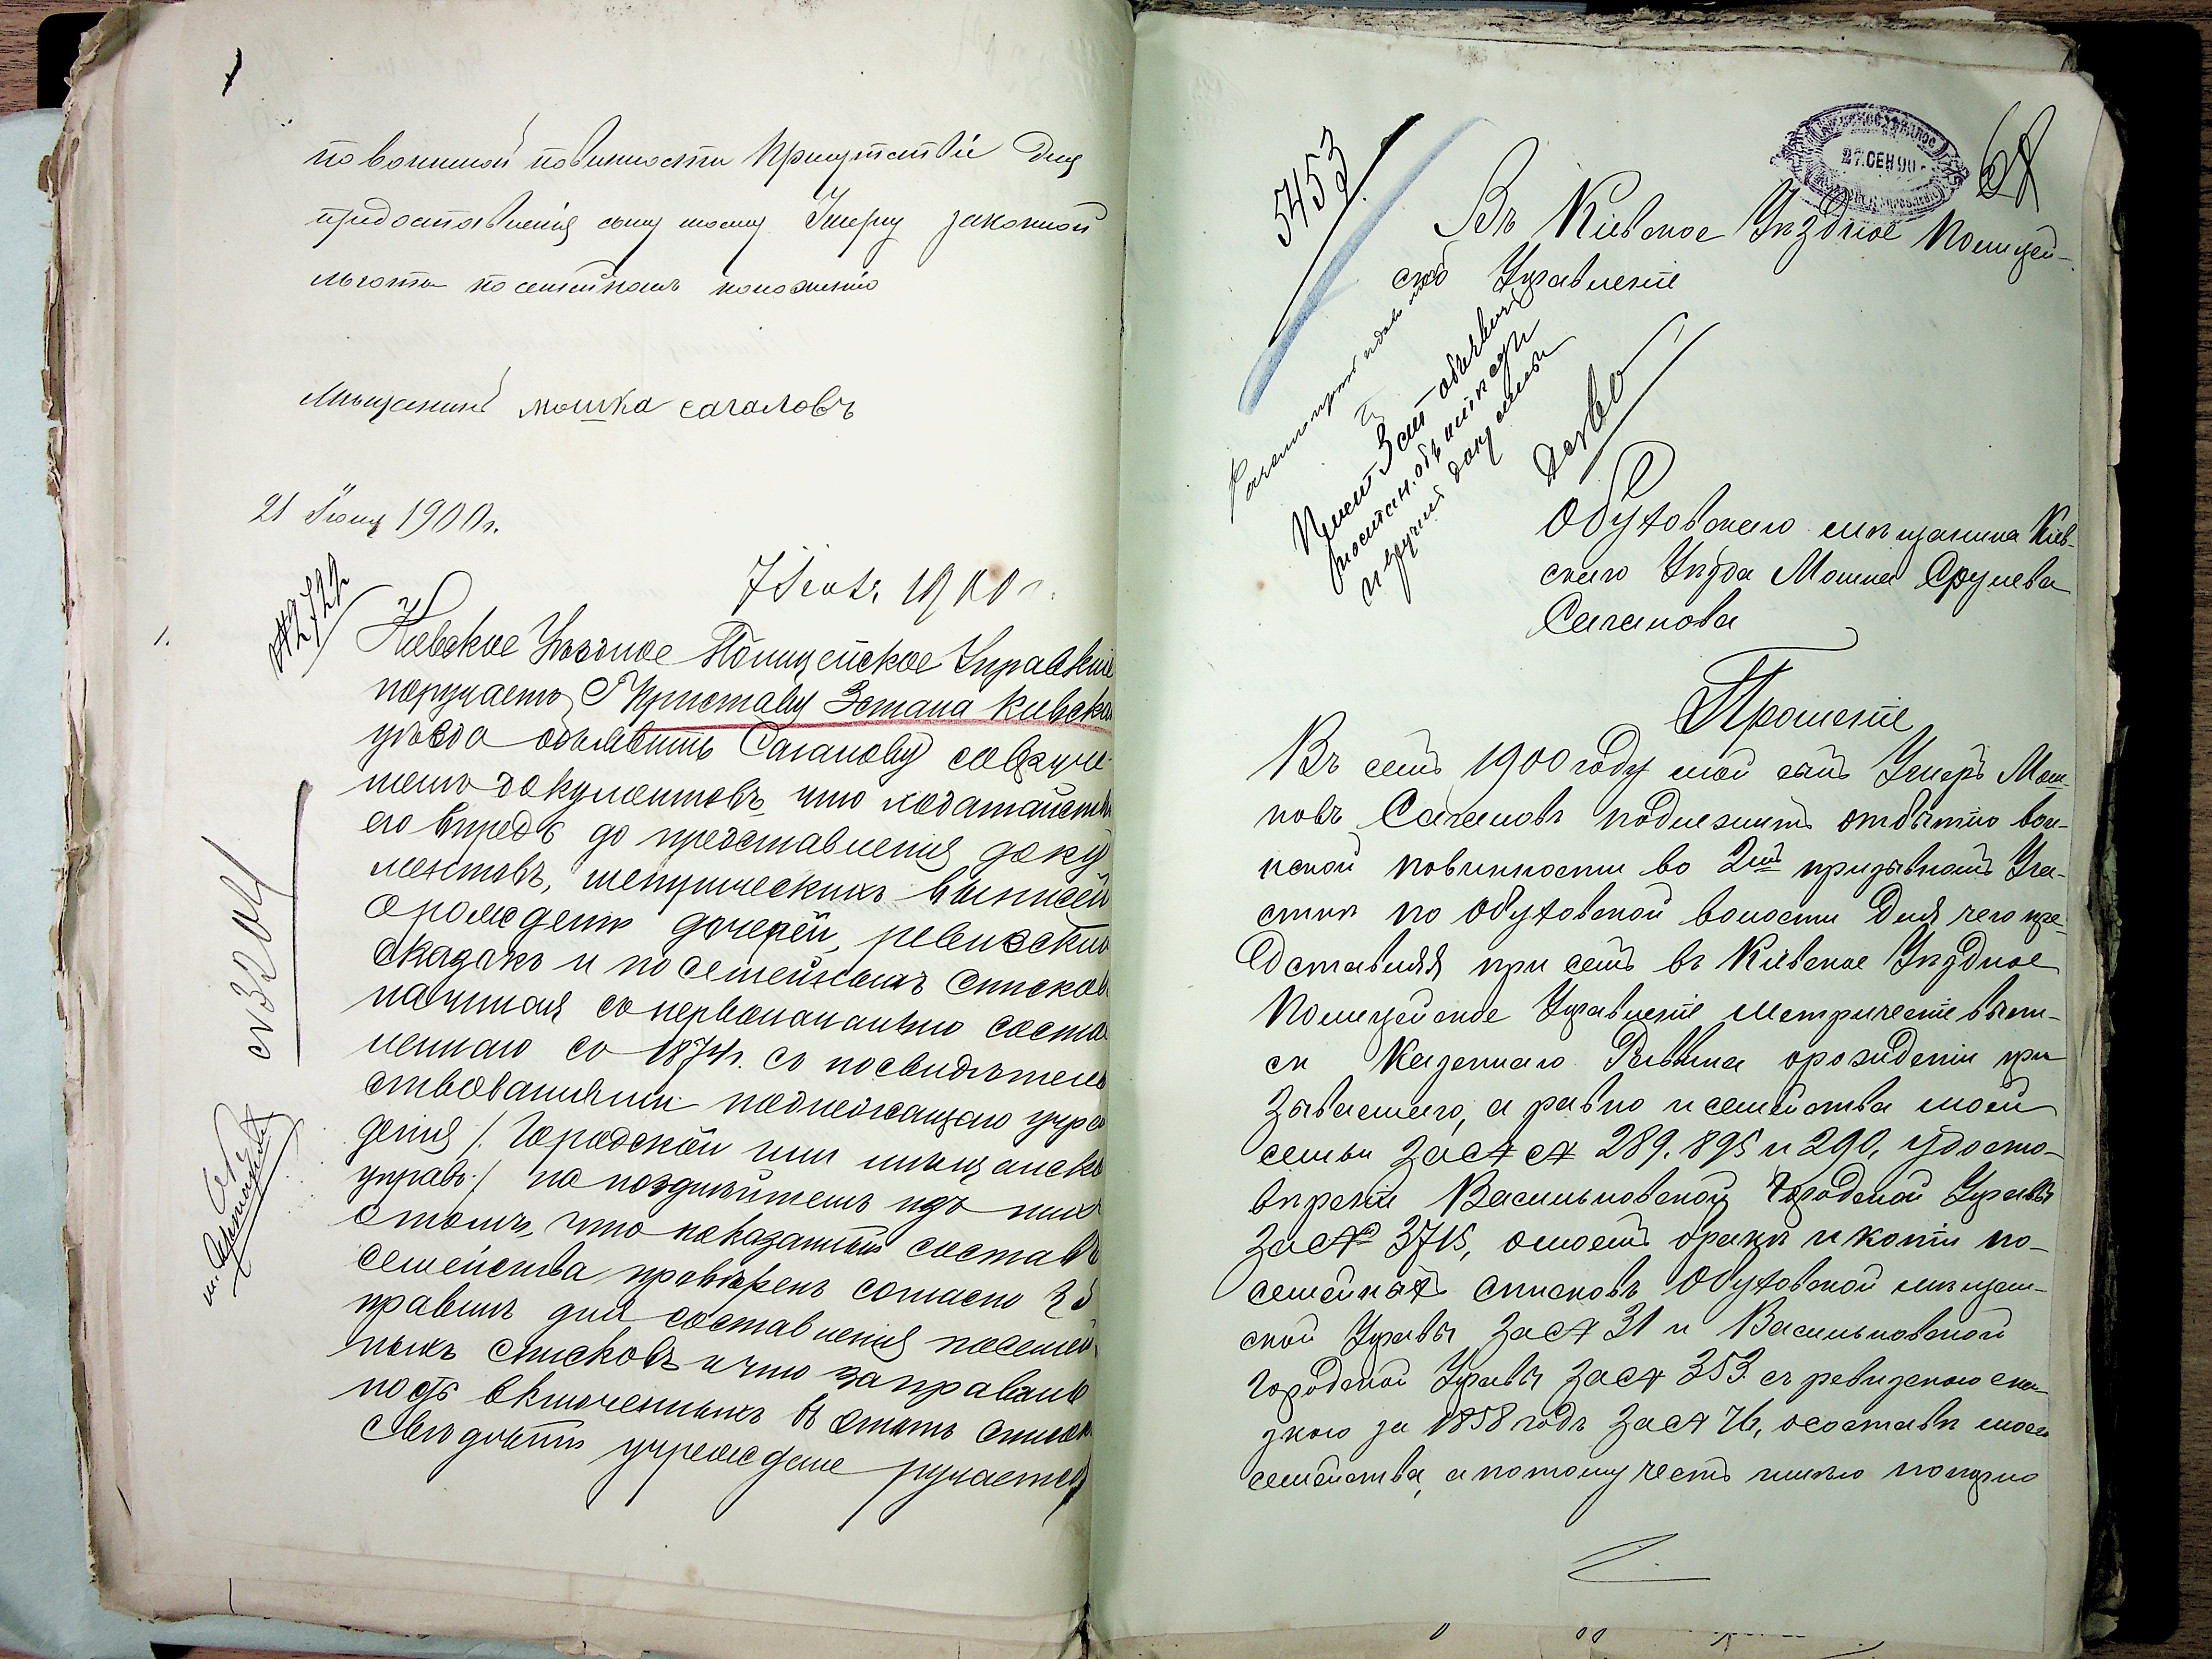 по воинской повинности Присутствіе для
предоставленія сыну моему Умеру законной
льготы по семейному положенію
Мѣщанинъ мошка сагаловъ
21 Іюня 1900 г.
7 Іюля 1900 г.
Кіевское Уѣздное Полицейское Управленіе
поручаетъ Г Приставу 3 стана Кіевска
уѣзда объявить Сагалову
документовъ что ходатайств
его впредь до представленія доку
ментовъ, метрическихъ выписей
о рожденіи дочерей, ревизскихъ
сказокъ и посемейныхъ списков
начиная съ первоначально соста
леннаго съ 1874 г. съ посвидѣтель
ствованіями надлежащаго учре
денія /. Городской или мѣщанско
управ. / на позднѣйшемъ изъ них
о томъ, что показанный составъ
семейства провѣренъ согласно
правилъ для составленія посемей
ныхъ списковъ и что за правиль
ность включенныхъ въ списк
свѣдѣній учрежденіе ручается
1.
№ 3204
5453
27. СЕН 900
68
Въ Кіевское Уѣздное Полицей-
ское Управленіе
Обуховскаго мѣщанина Кіев-
скаго Уѣзда Мошка Срулева
Сагалова
Прошеніе
Въ семъ 1900 году мой сынъ Умеръ Мош-
ковъ Сагаловъ подлежитъ отбытію вои-
нской повинности во 2мъ призывномъ Уча-
сткѣ по Обуховской волости для чего пре-
доставляя при семъ въ Кіевское Уѣздное
Полицейское Управленіе Метрическіе выпи-
си Казеннаго Раввина о рожденіи при
зываемаго, а равно и семейства моей
семьи за №№ 289. 895 и 290, удосто-
вѣреніе Васильковской Городской Управы
за № 3715, о моемъ бракѣ и копіи по-
семейныхъ списковъ Обуховской мѣщан-
ской Управы за № 31 и Васильковской
Городской Управы за № 353. съ ревизскою ска-
зкою за 1858 годъ за № 76, о составѣ моего
семейства, а потому честь имѣю покорно